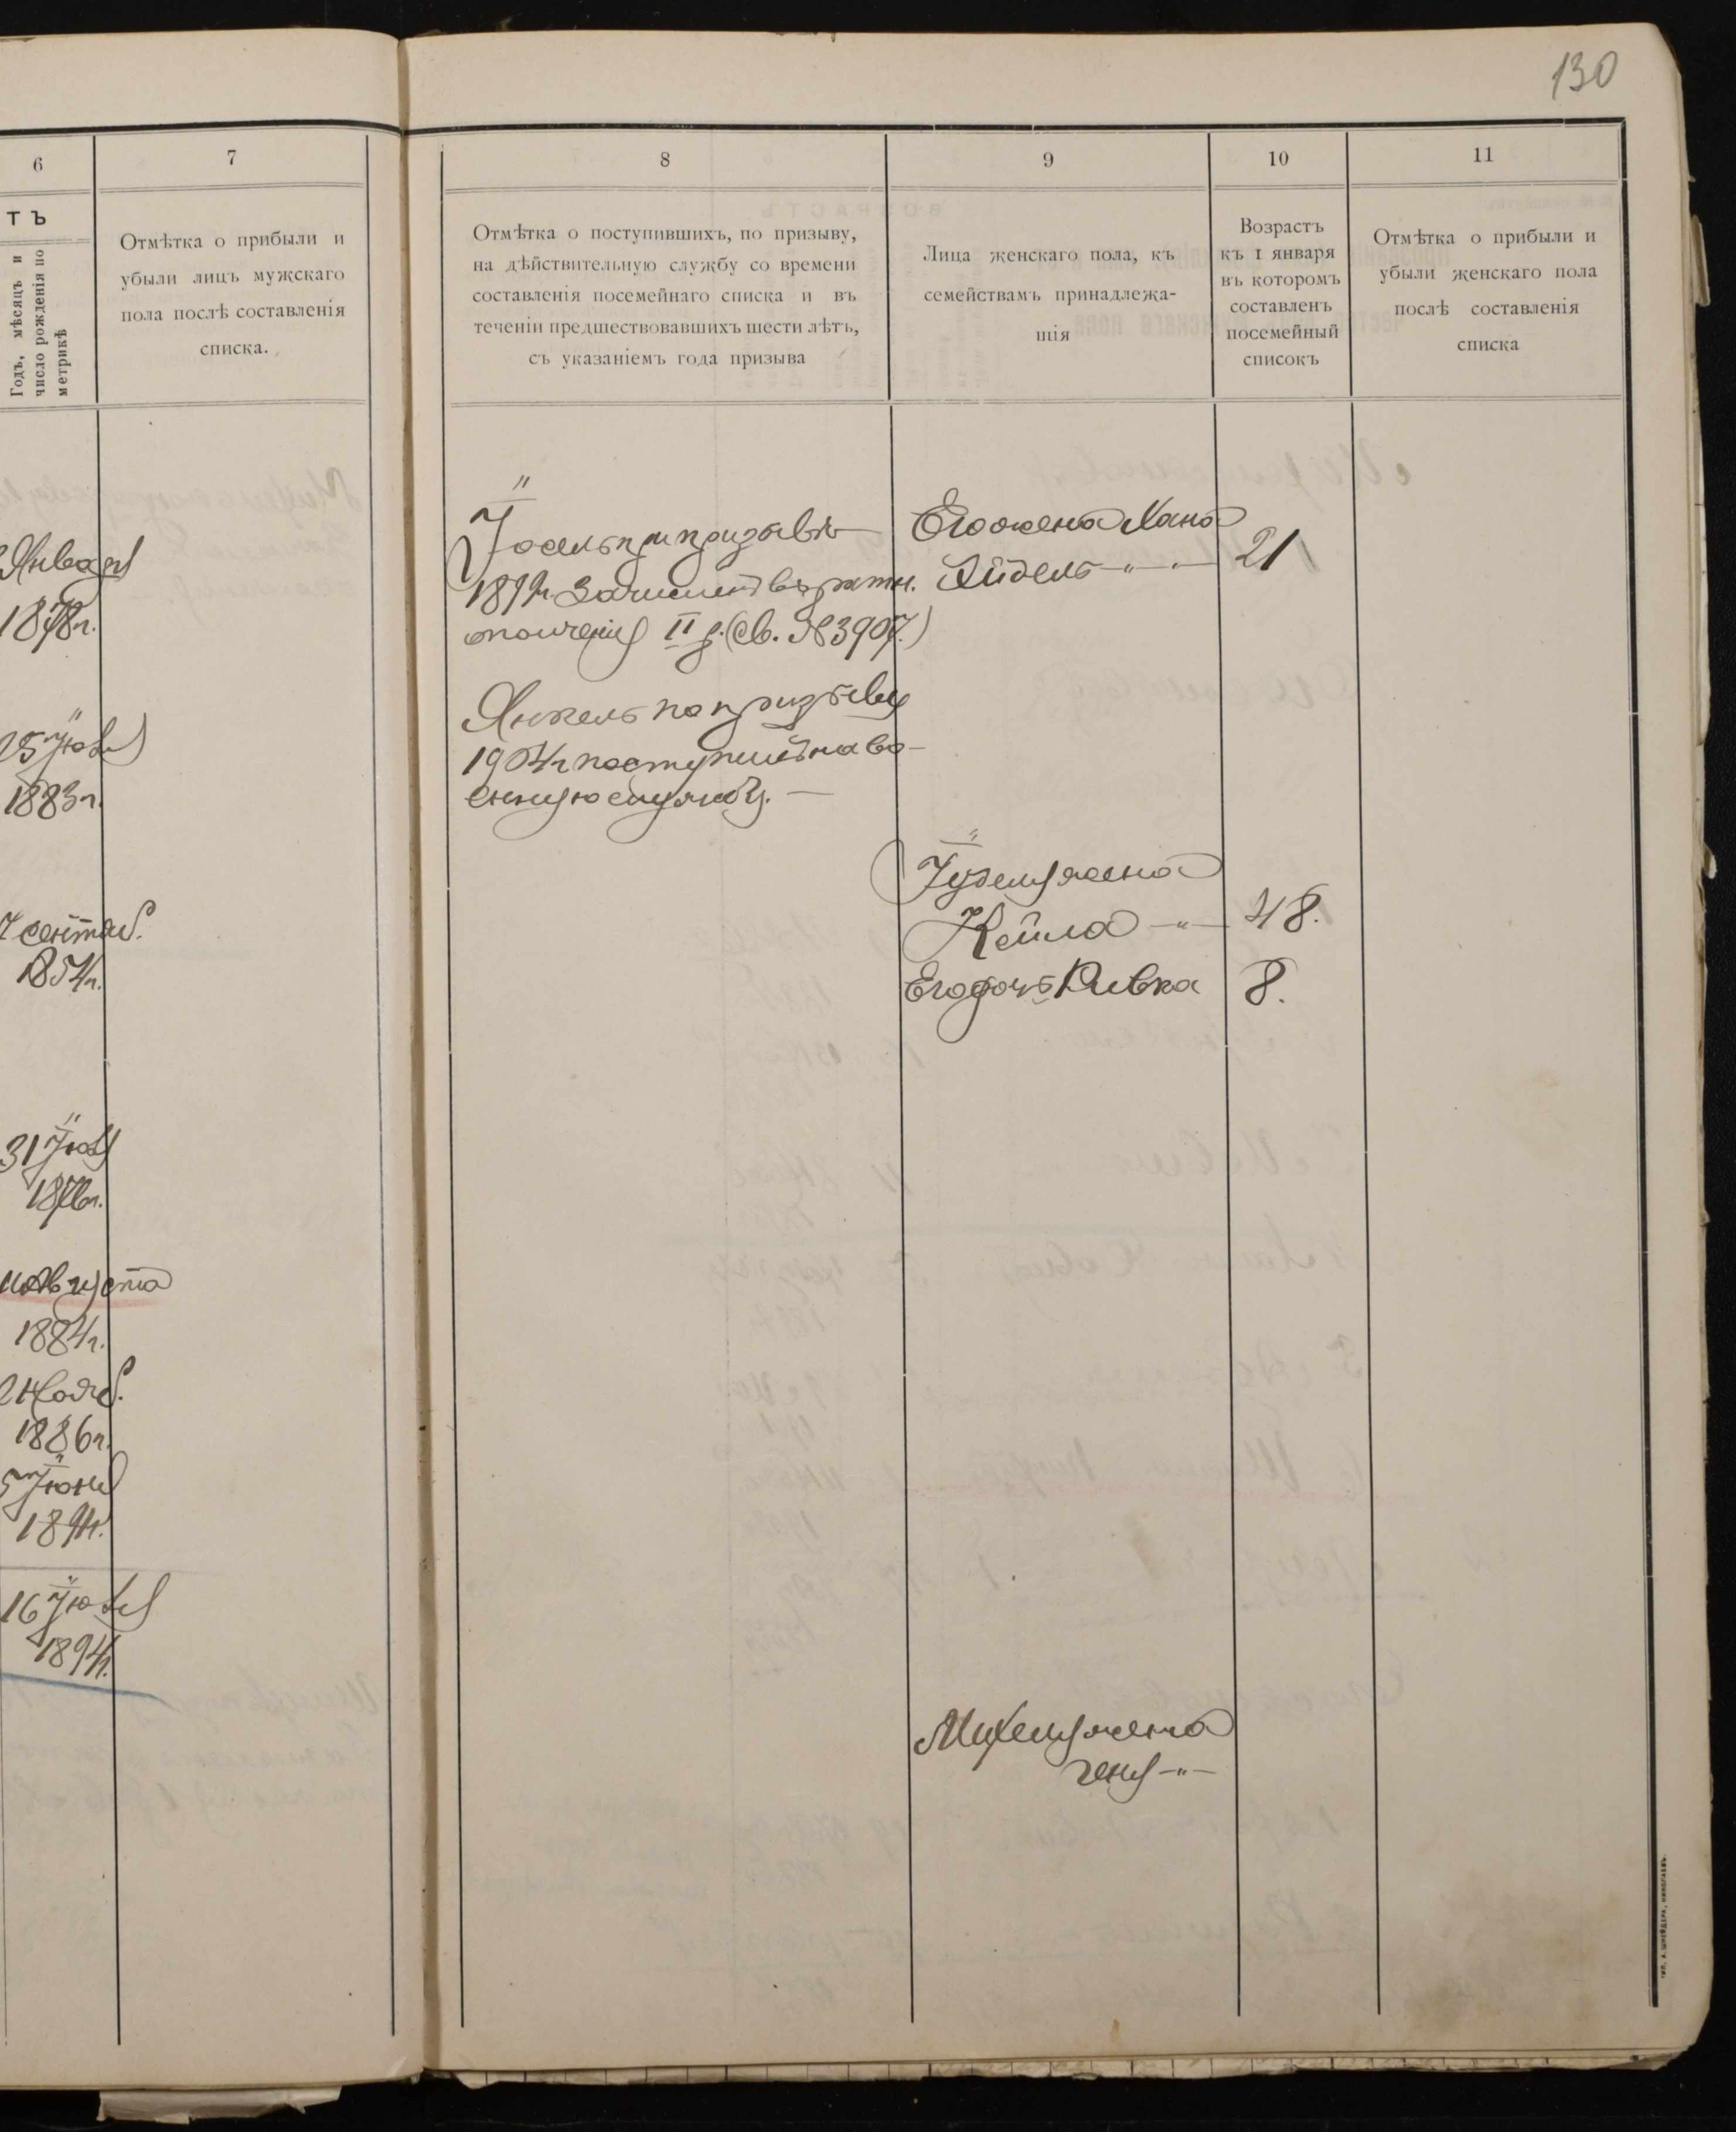 130
6
7
8
9
10
11
ТЪ
Годъ, мѣсяцъ и
число рожденія по
метрикѣ
Отмѣтка о прибыли и
убыли лицъ мужскаго
пола послѣ составленія
списка.
Отмѣтка о поступившихъ, по призыву,
на дѣйствительную службу со времени
составленія посемейнаго списка и въ
теченіи предшествовавшихъ шести лѣтъ,
съ указаніемъ года призыва
Лица женскаго пола, къ
семействамъ принадлежа-
щія
Возрастъ
къ 1 января
въ которомъ
составленъ
посемейный
списокъ
Отмѣтка о прибыли и
убыли женскаго пола
послѣ составленія
списка
Января
1878г.
25 Іюля
1883г.
сентяб.
1854г.
31 Іюля
августа
1884г.
Нояб.
1886г.
5 Іюня
16 Іюля
1894г.
Іосель при призывѣ
зачисленъ въ ратн.
ополченія II р. (св. №3907.)
Янкель по призыву
1904г поступилъ на во-
енную службу. —
Его жена Хана
Эйдель —"— 21
Іуделя жена
Кейла —"— 48.
Его дочь Ривка 8.
Михеля жена
Геня —"—
тип. А. Шнейдера, Николаевъ.